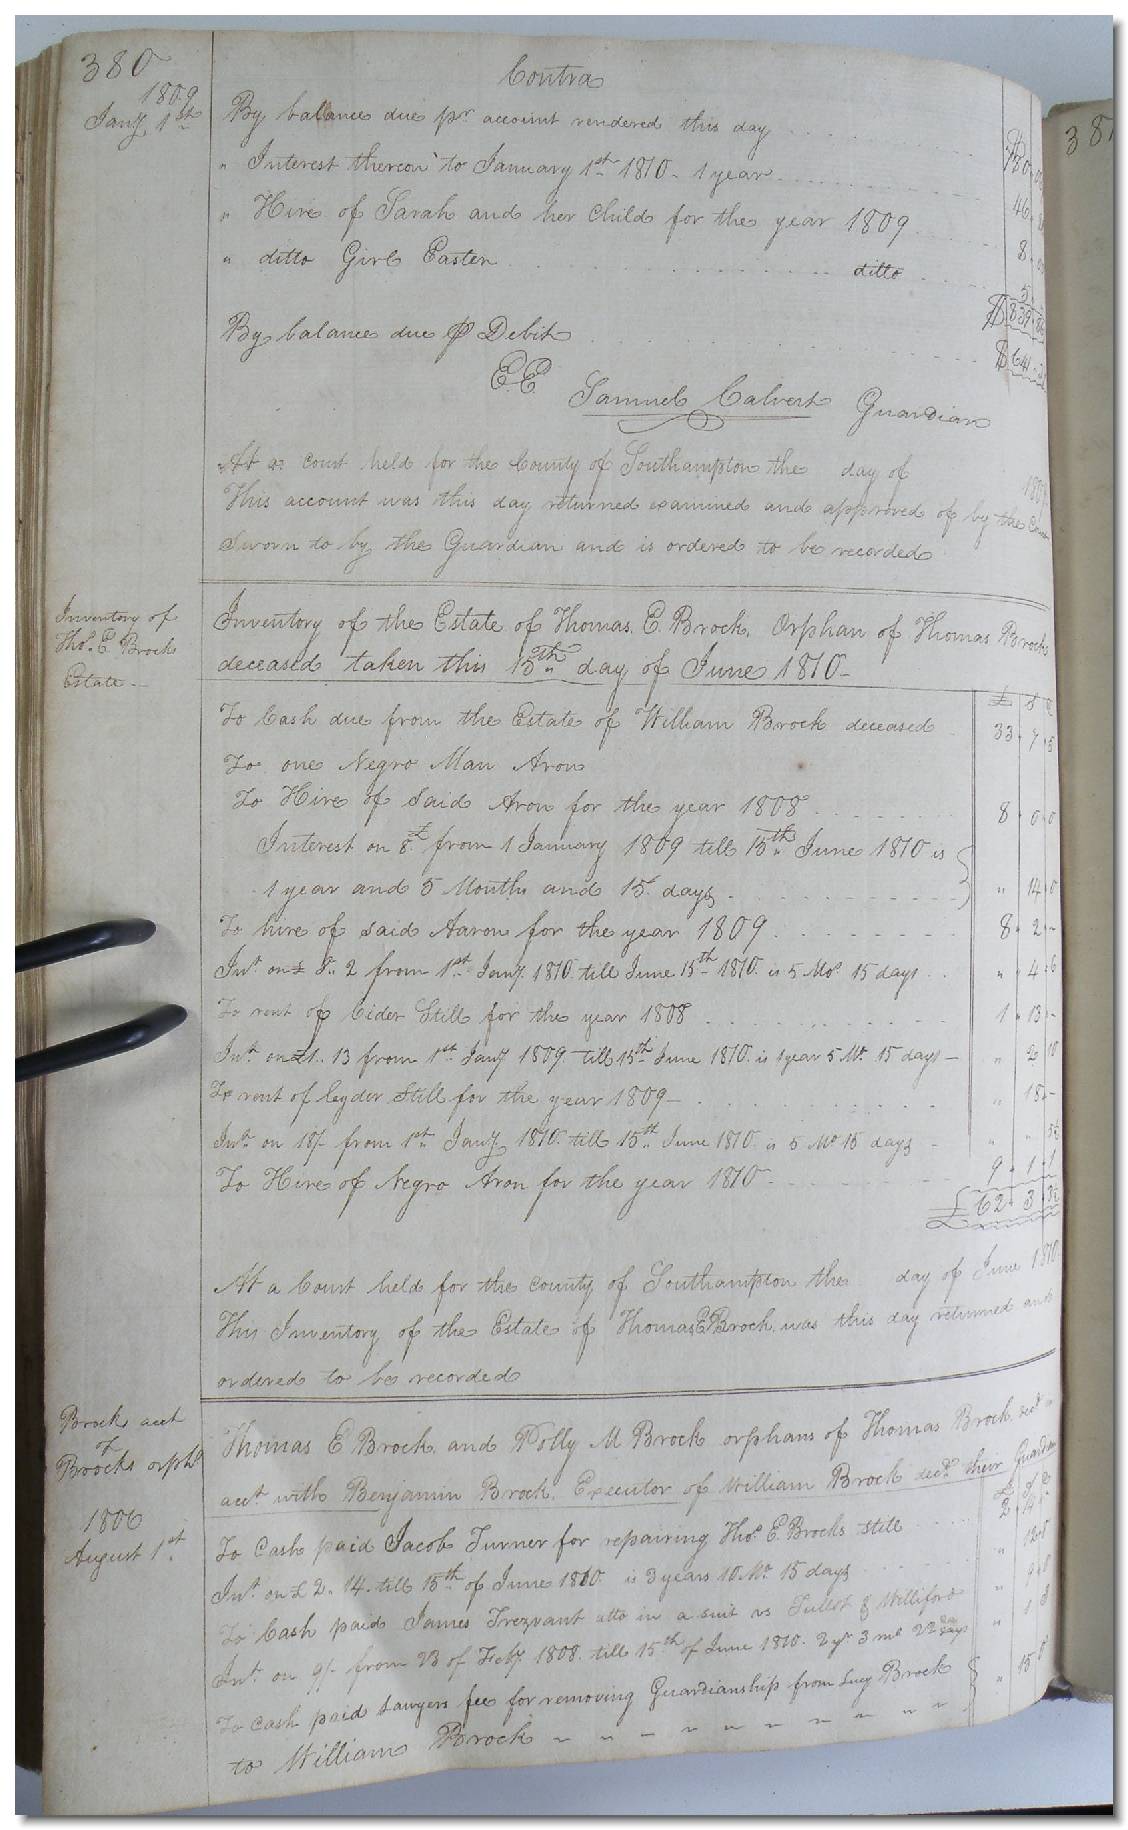 380
381
Contra
1809
Jany. 1st By balance due pr. account rendered this day
" Interest thereon to January 1st 1810 - 1 year 46
" Hire of Sarah and her Child for the year 1809 8
" ditto Girl Easter ditto 5
$839
By balance due ℔ Debit $641
E.E.
Samuel Calvert Guardian
At a court held for the County of Southampton the day of
This account was this day returned examined and approved of by the Court
Sworn to by the Guardian and is ordered to be recorded
Inventory of
Thos. E. Brock
Estate -
Inventory of the Estate of Thomas. E. Brock. Orphan of Thomas Brock
deceased taken this 15th day of June 1810 -
£ S
To Cash due from the Estate of William Brock deceased 33 7 5
To one Negro Man Aron
To Hire of said Aron for the year 1808 8 0 0
Interest on 8£ from 1 January 1809 till 15th June 1810 is
1 year and 5 Months and 15 days " 14 0
To hire of said Aaron for the year 1809 8 2 -
Int. on £ 8.. 2 from 1st Jany. 1810. till June 15th 1810. is 5 Mos. 15 days " 4 6
To rent of Cider Still for the year 1808 1 13 -
Int. on £1.. 13 from 1st Jany 1809 till 15th June 1810. is 1 year 5 Mo. 15 days - " 2 10
To rent of Cyder Still for the year 1809 - " 18 -
Int. on 18/- from 1st Jany. 1810. till 15th June 1810. is 5 Mo 15 days - " " 5½
To Hire of Negro Aron for the year 1810 - 9 1 1
£62 3 3½
At a Court held for the county of Southampton the day of June 1810
This Inventory of the Estate of Thomas E Brock was this day returned and
ordered to be recorded
Brocks acct
Brocks orphs
Thomas E Brock and Polly M Brock orphans of Thomas Brock decd. in
acct. with Benjamin Brock. Executor of William Brock decd. their Guardian
1806
August 1st.
To Cash paid Jacob Turner for repairing Thos. E. Brocks still 2 14
Int. on £ 2.. 14. till 15th of June 1810 is 3 years 10 Mo. 15 days
To Cash paid James Trezvant atto in a suit vs Williford
Int. on 9/- from 23 of Feby. 1808. till 15th of June 1810. 2 yr 3 mo 22 days
To Cash paid Lawyers fee for removing Guardianship from Lucy Brock " 15
to William Brock